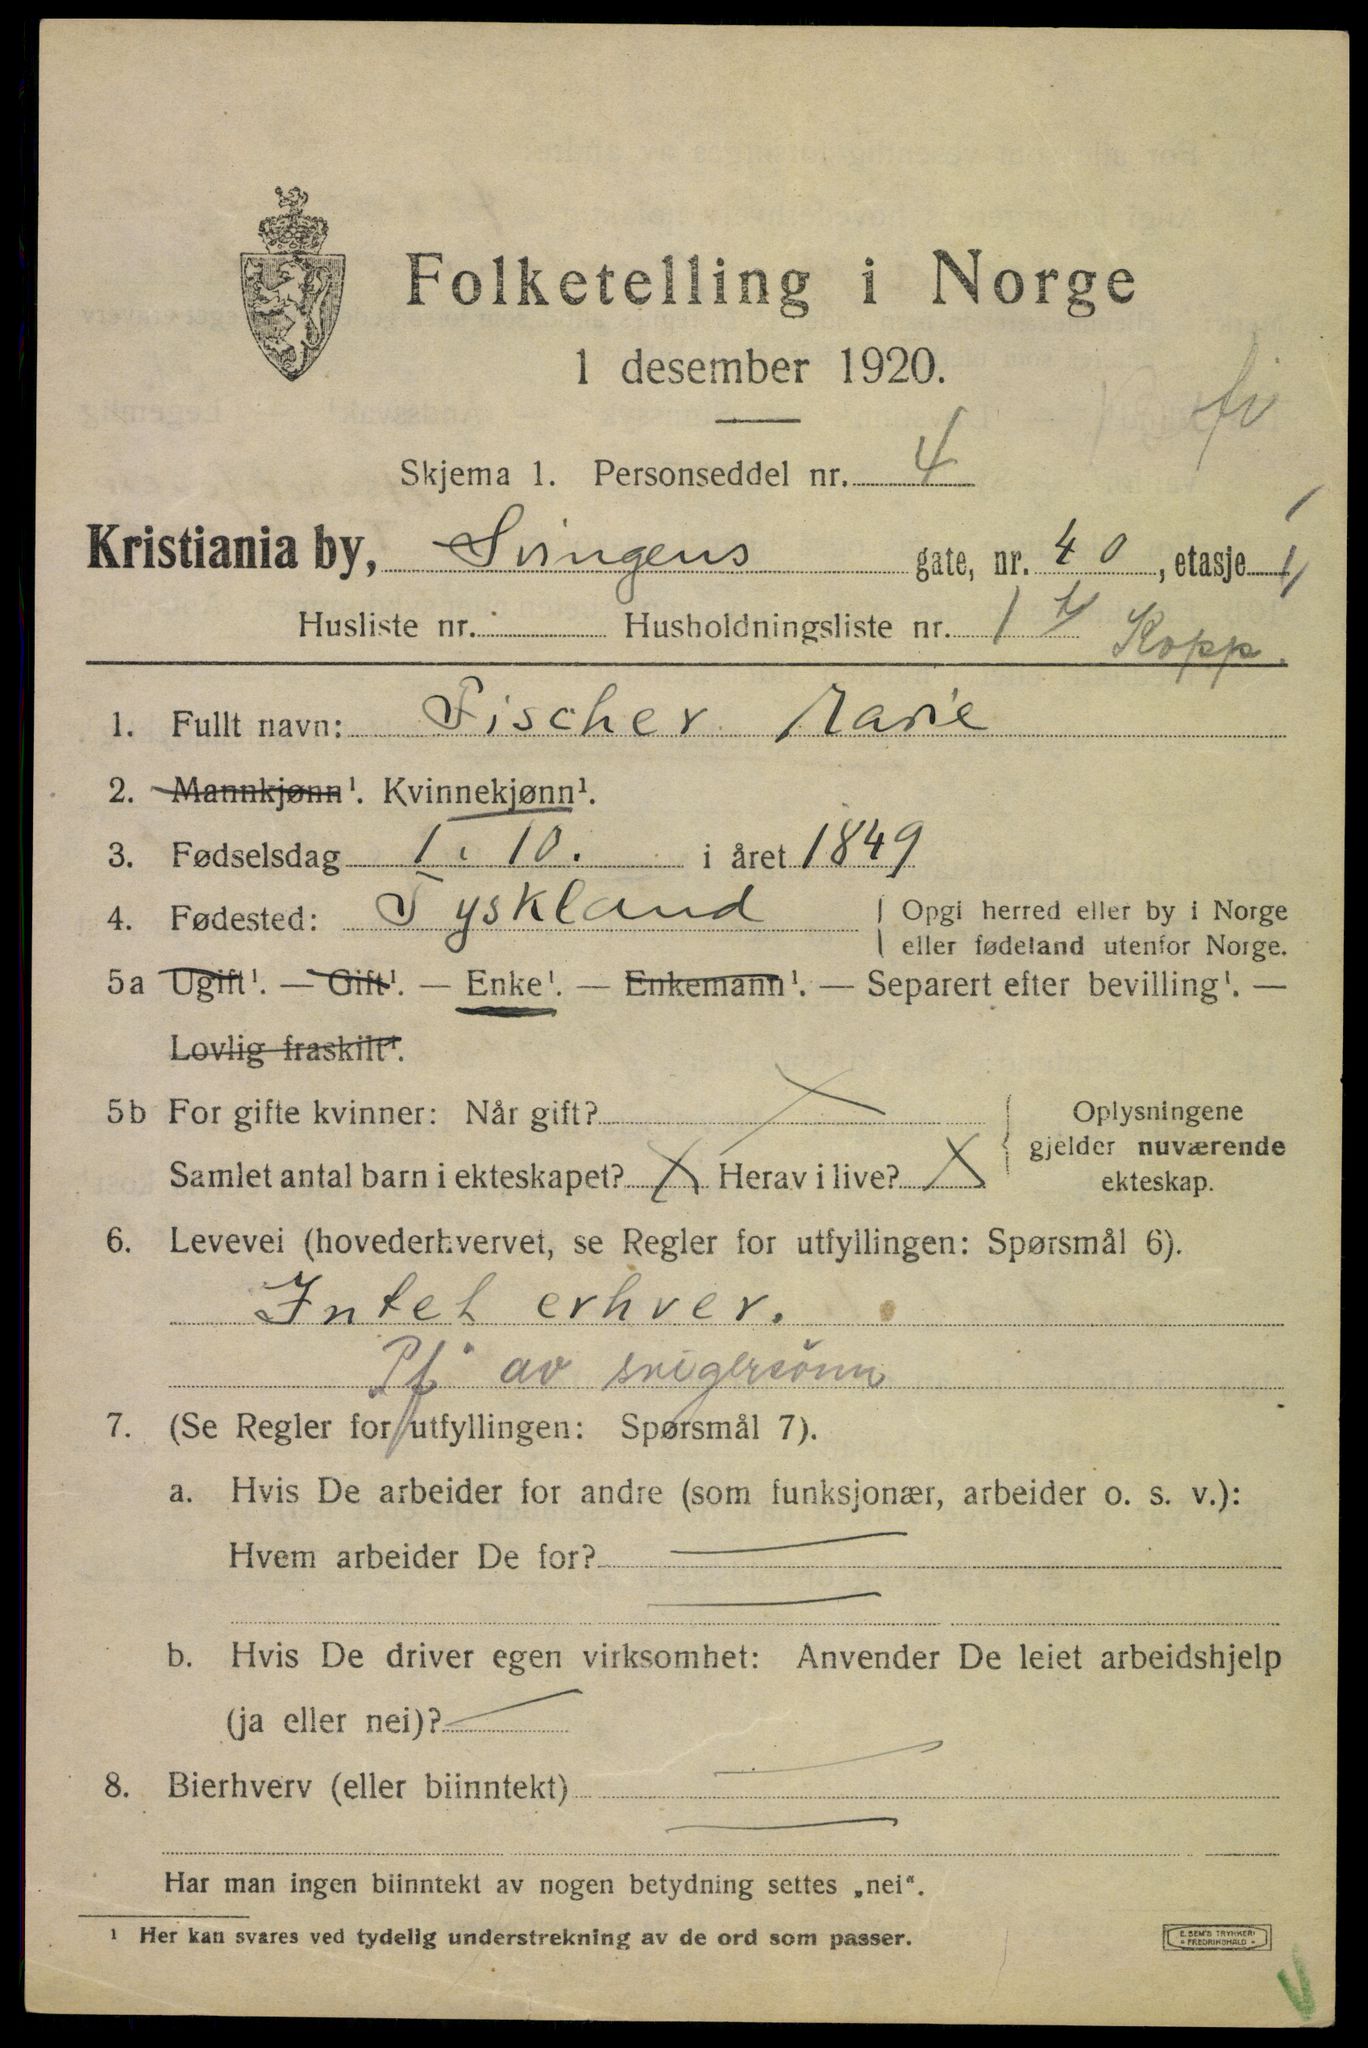 Folketelling i Norge
1 desember 1920.
Skjema 1. Personseddel nr. 4
Kristiania by, Svingens gate, nr. 40, etasje 1
Husliste nr. Husholdningsliste nr. 1
Kopp.
1. Fullt navn: Fischer Marie
2. Mannkjønn¹. Kvinnekjønn¹.
3. Fødselsdag 1. 10. i året 1849
4. Fødested: Tyskland Opgi herred eller by i Norge
eller fødeland utenfor Norge.
5a Ugift¹. — Gift¹. — Enke¹. — Enkemann¹. — Separert efter bevilling¹. —
Lovlig fraskilt¹.
5b For gifte kvinner: Når gift? X
Samlet antal barn i ekteskapet? X Herav i live? X
Oplysningene
gjelder nuværende
ekteskap.
6. Levevei (hovederhvervet, se Regler for utfyllingen: Spørsmål 6).
Intet erhver.
Pf av svigersönn
7. (Se Regler for utfyllingen: Spørsmål 7).
a. Hvis De arbeider for andre (som funksjonær, arbeider o. s. v.):
Hvem arbeider De for? —
—
b. Hvis De driver egen virksomhet: Anvender De leiet arbeidshjelp
(ja eller nei)? —
8. Bierhverv (eller biinntekt) —
—
Har man ingen biinntekt av nogen betydning settes „nei“.
¹ Her kan svares ved tydelig understrekning av de ord som passer.
E. SEM'S TRYKKERI
FREDRIKSHALD